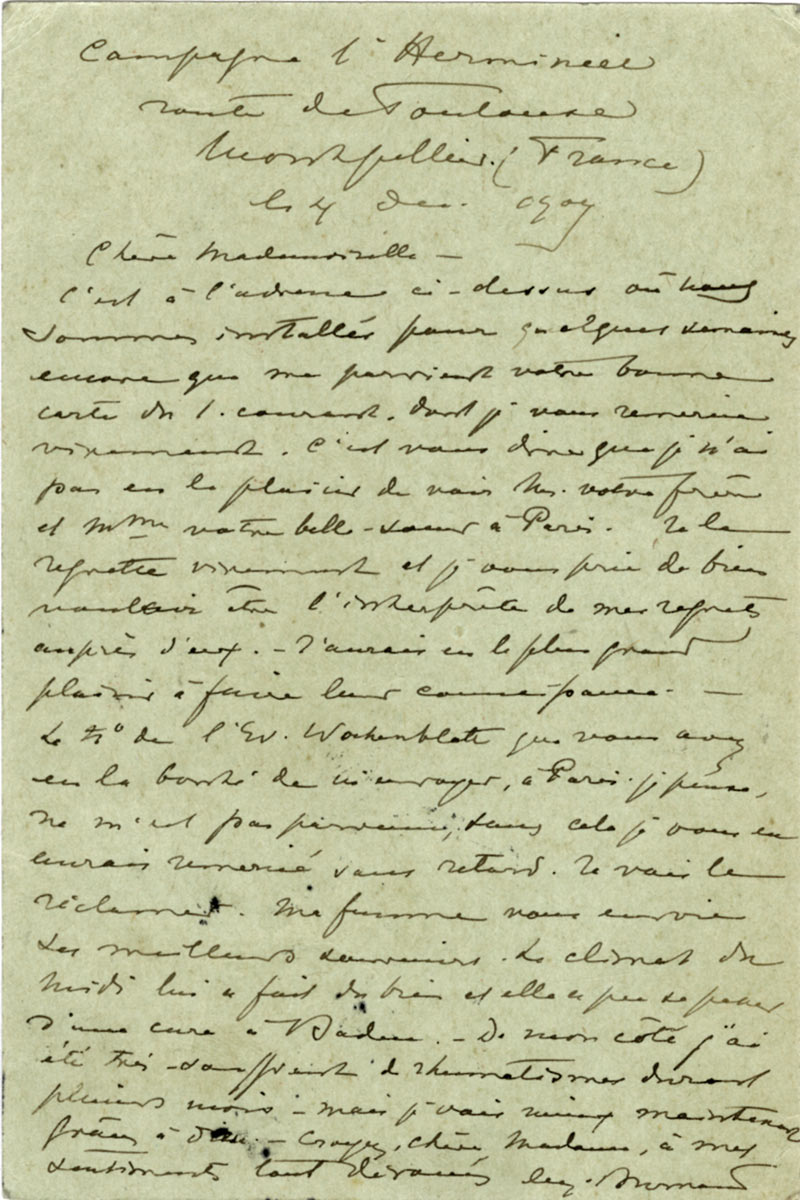 Campagne l'Hermineée
route de Toulouse
Montpellier. (France)
le 4 Dec. 1907
Chère Mademoiselle —
C'est à l'adresse ci-dessus où nous
sommes installés pour quelques semaines
encore que me parvient votre bonne
carte du 1. courant, dont je vous remercie
vivement. C'est vous dire que je n'ai
pas eu le plaisir de voir Mr. votre frère
et Mme votre belle-soeur à Paris. Je le
regrette vivement et je vous prie de bien
vouloir être l'interprète de mes regrets
auprès d'eux. — J'aurais eu le plus grand
plaisir à faire leur connaissance. —
Le No de l'Ev. Wochenblatt que vous avez
eu la bonté de m'envoyer, à Paris je pense,
ne m'est pas parvenu, sans cela je vous en
aurais remercié sans retard. Je vais le
réclamer. Ma femme vous envoie
ses meilleurs souvenirs. Le climat du
Midi lui a fait du bien et elle a pu se passer
d'une cure à Baden. — De mon côté j'ai
été très-souffrant de rhumatismes durant
plusieurs mois — mais je vais mieux maintenant
grâces à Dieu. — Croyez, chère Madame, à mes
sentiments tout dévoués Eug. Burnand